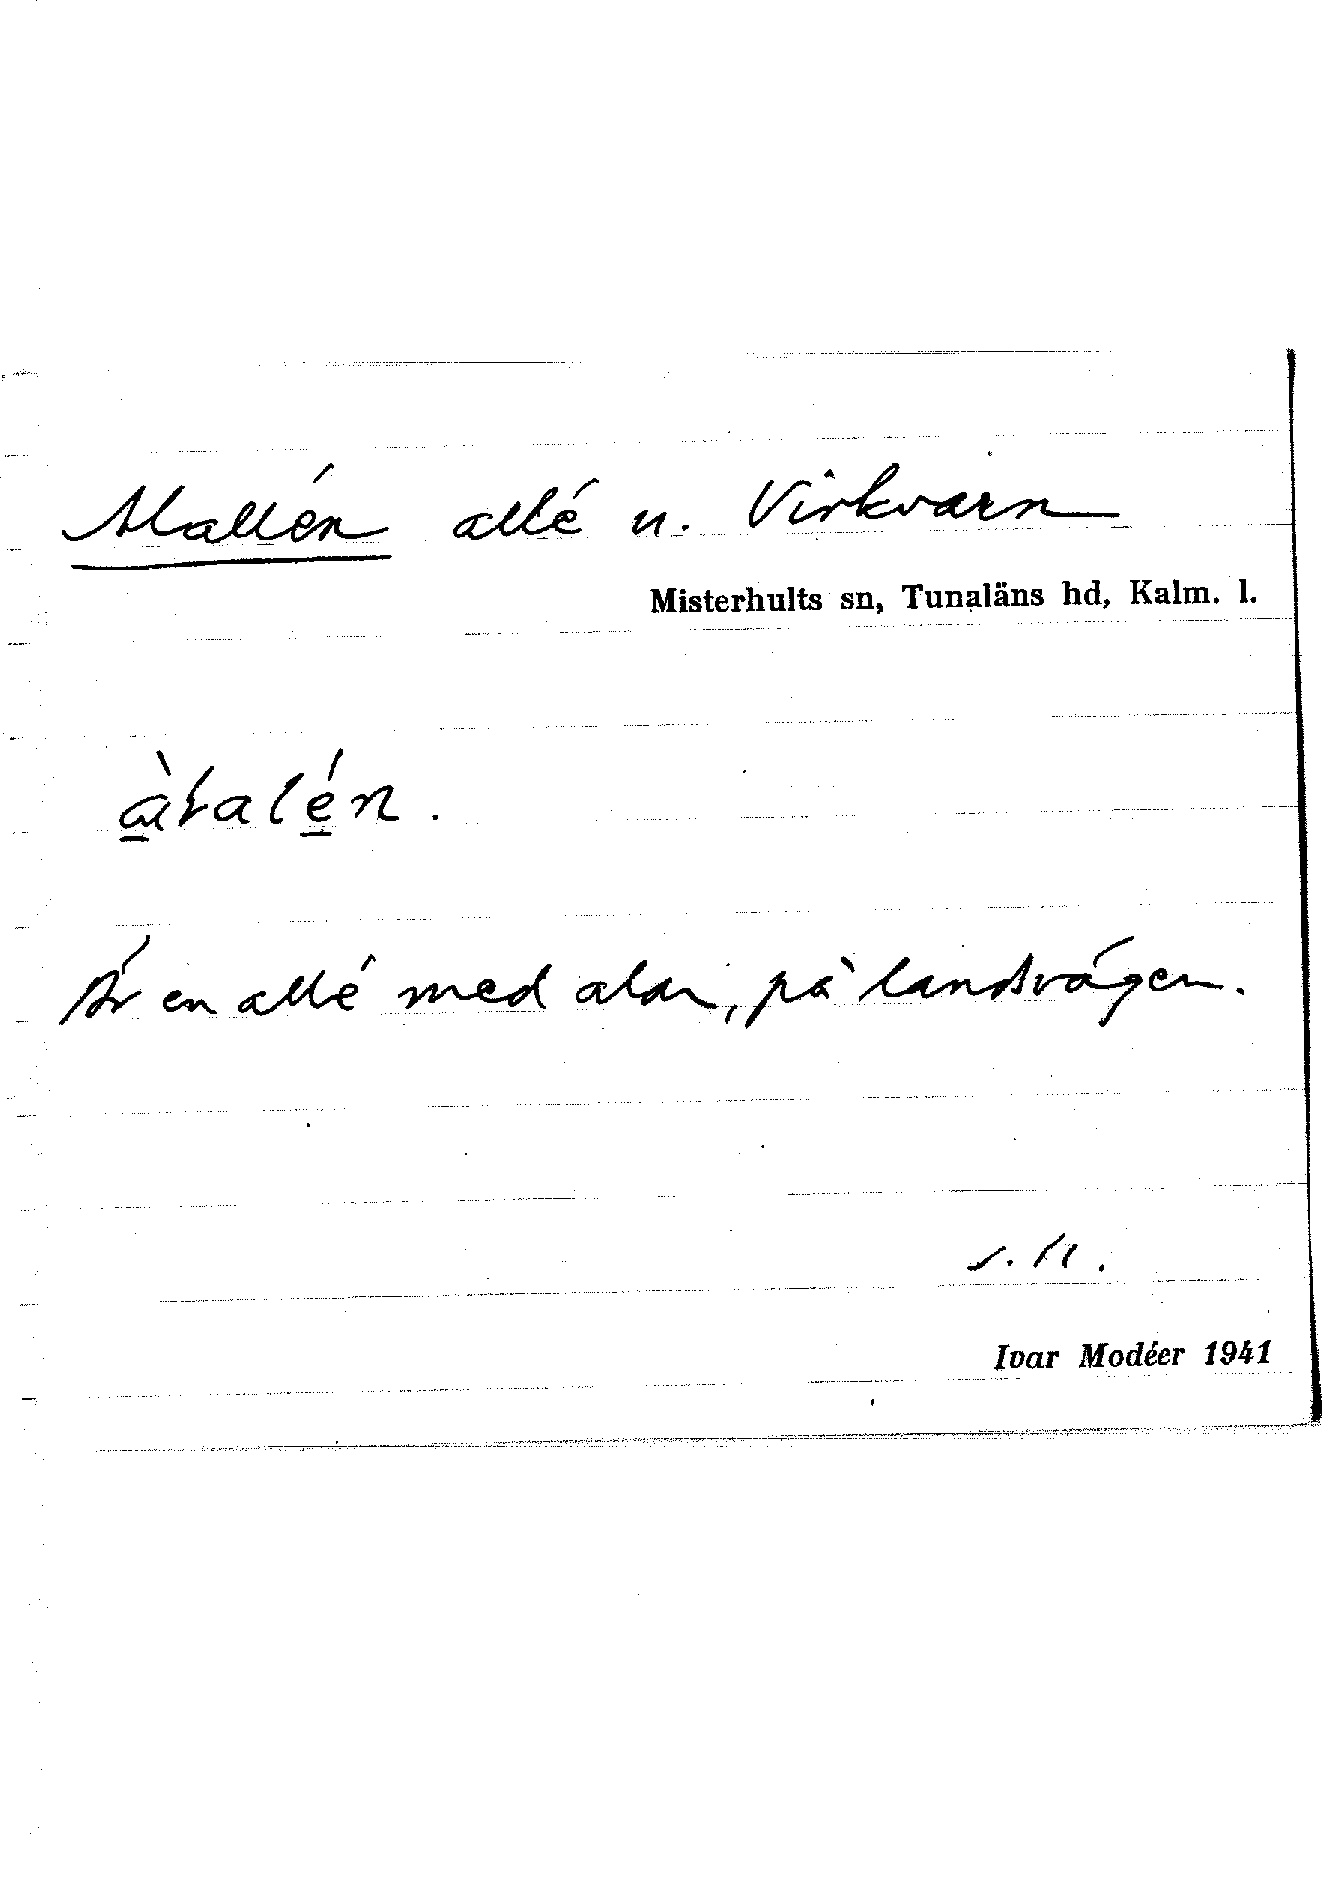 Alallén allé n. Virkvarn
Misterhults sn, Tunaläns hd, Kalm. l.
àlalén.
Är en allé med alar, på landsvägen.
Ivar Modéer 1941